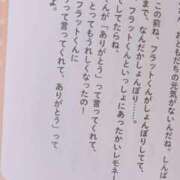 おともだちの元気がないと、しんぱ
この前ね、フラットくんがしょんぼりしてて、
まで、なんだかしょんぼり……。
フラットくんといっしょにあったかいレモネー
してたらね、
くんが「ありがとう」って
とってもうれしくなったの！
って言ってくれて、
う」って言ってくれて、ありがとう」って
よ。